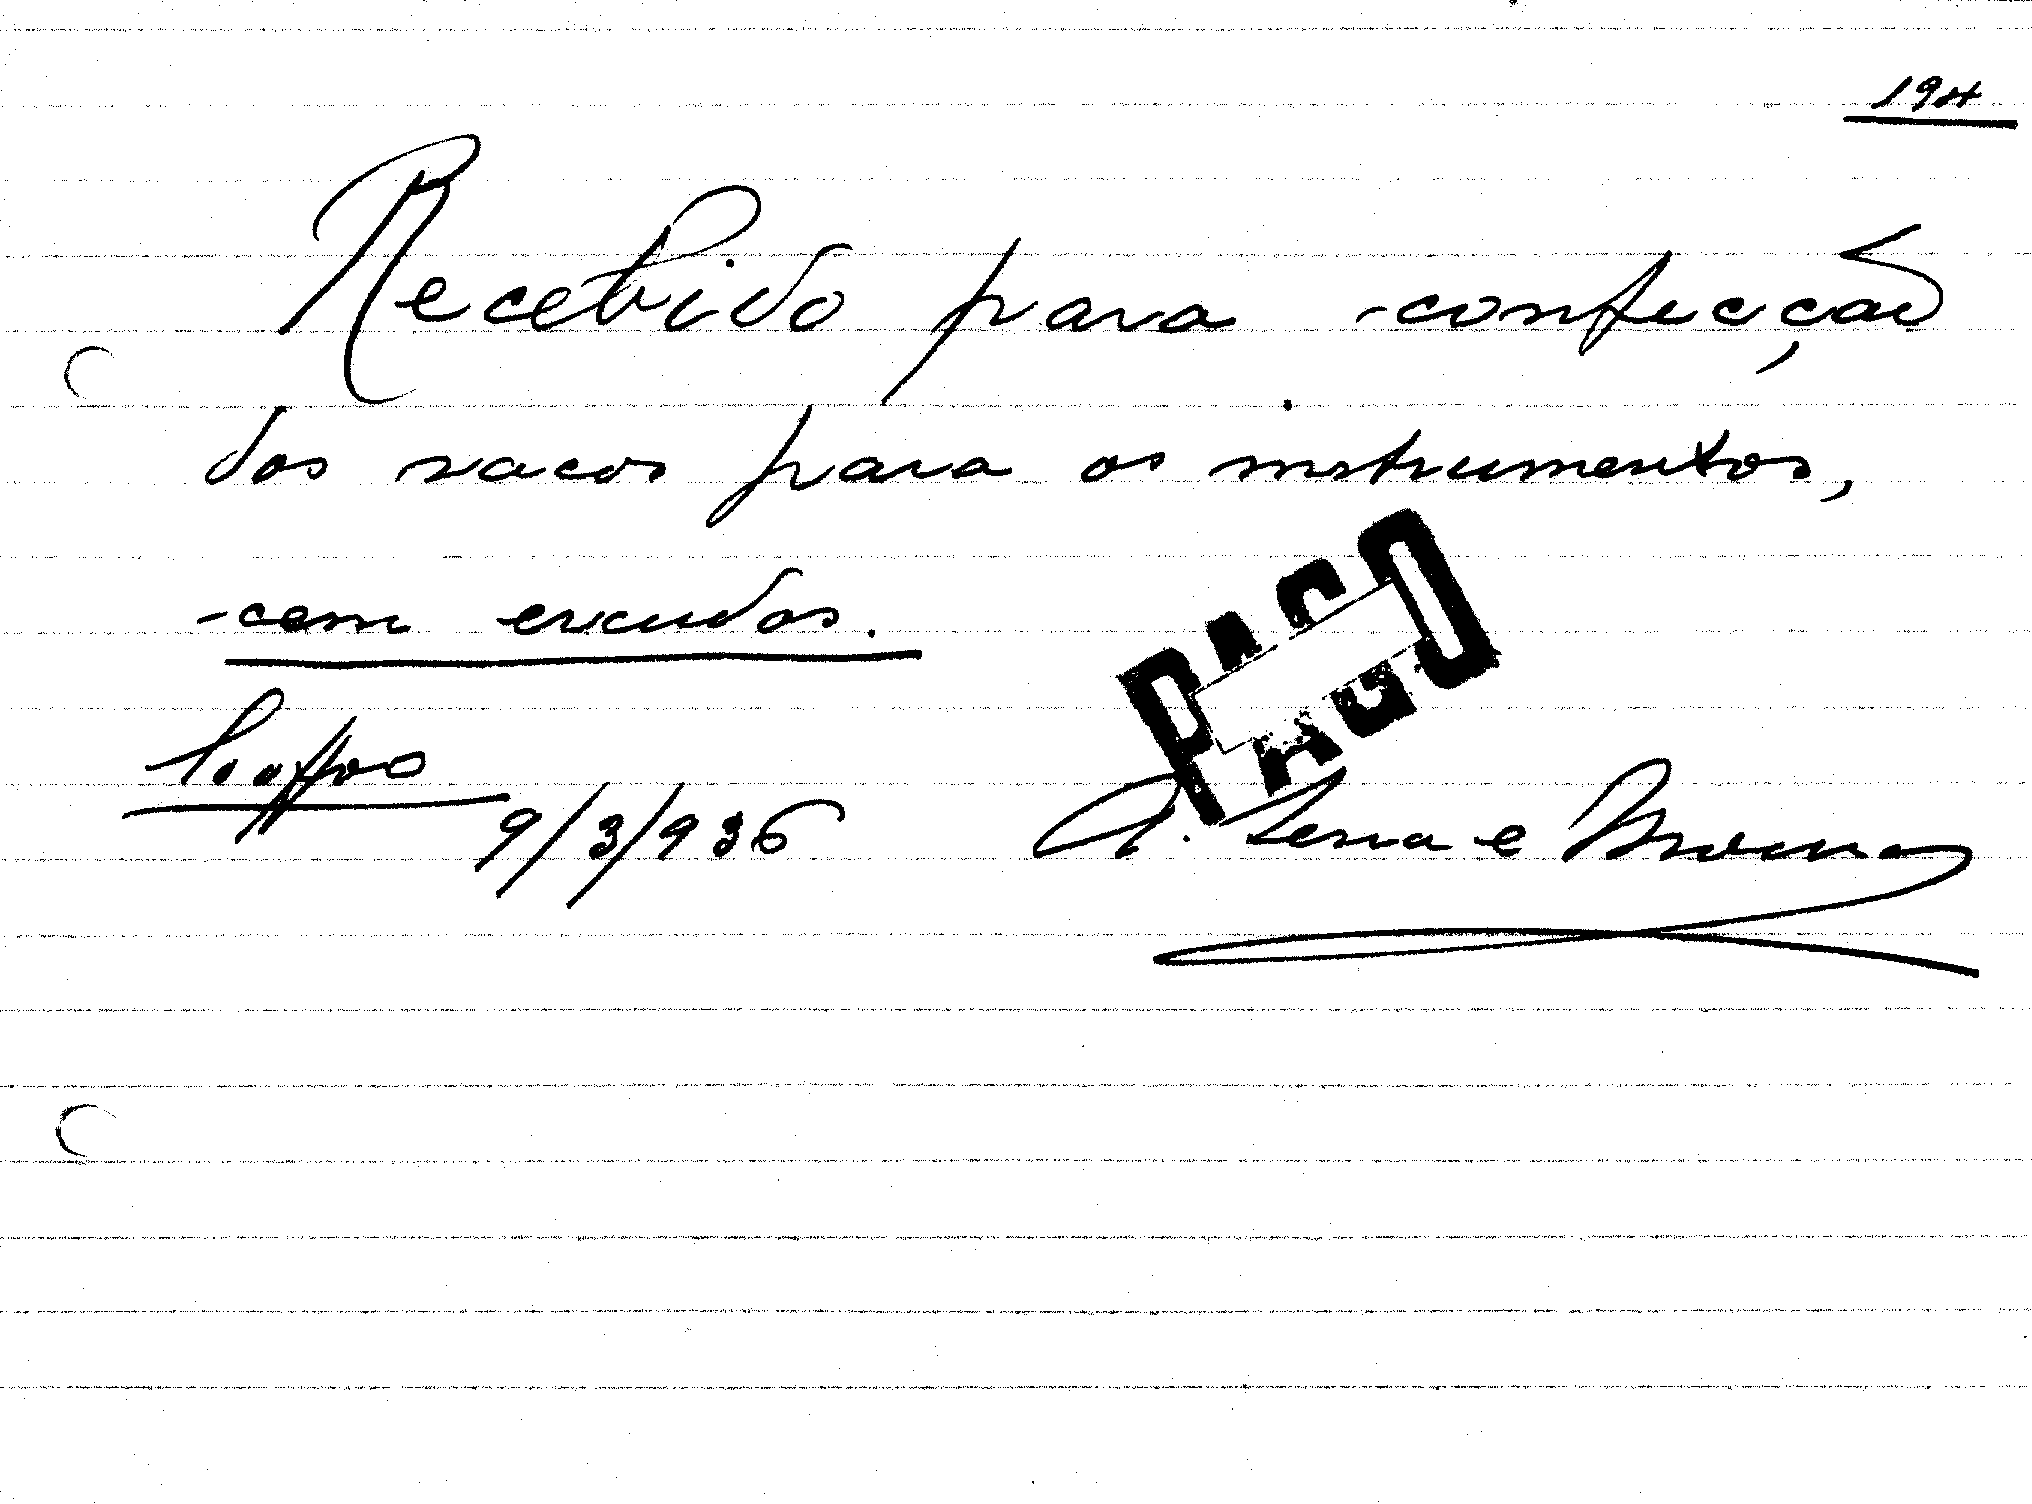 194
Recebido para confecção
dos sacos para os instrumentos,
cem escudos.
PAGO
9/3/936
A. Lena e